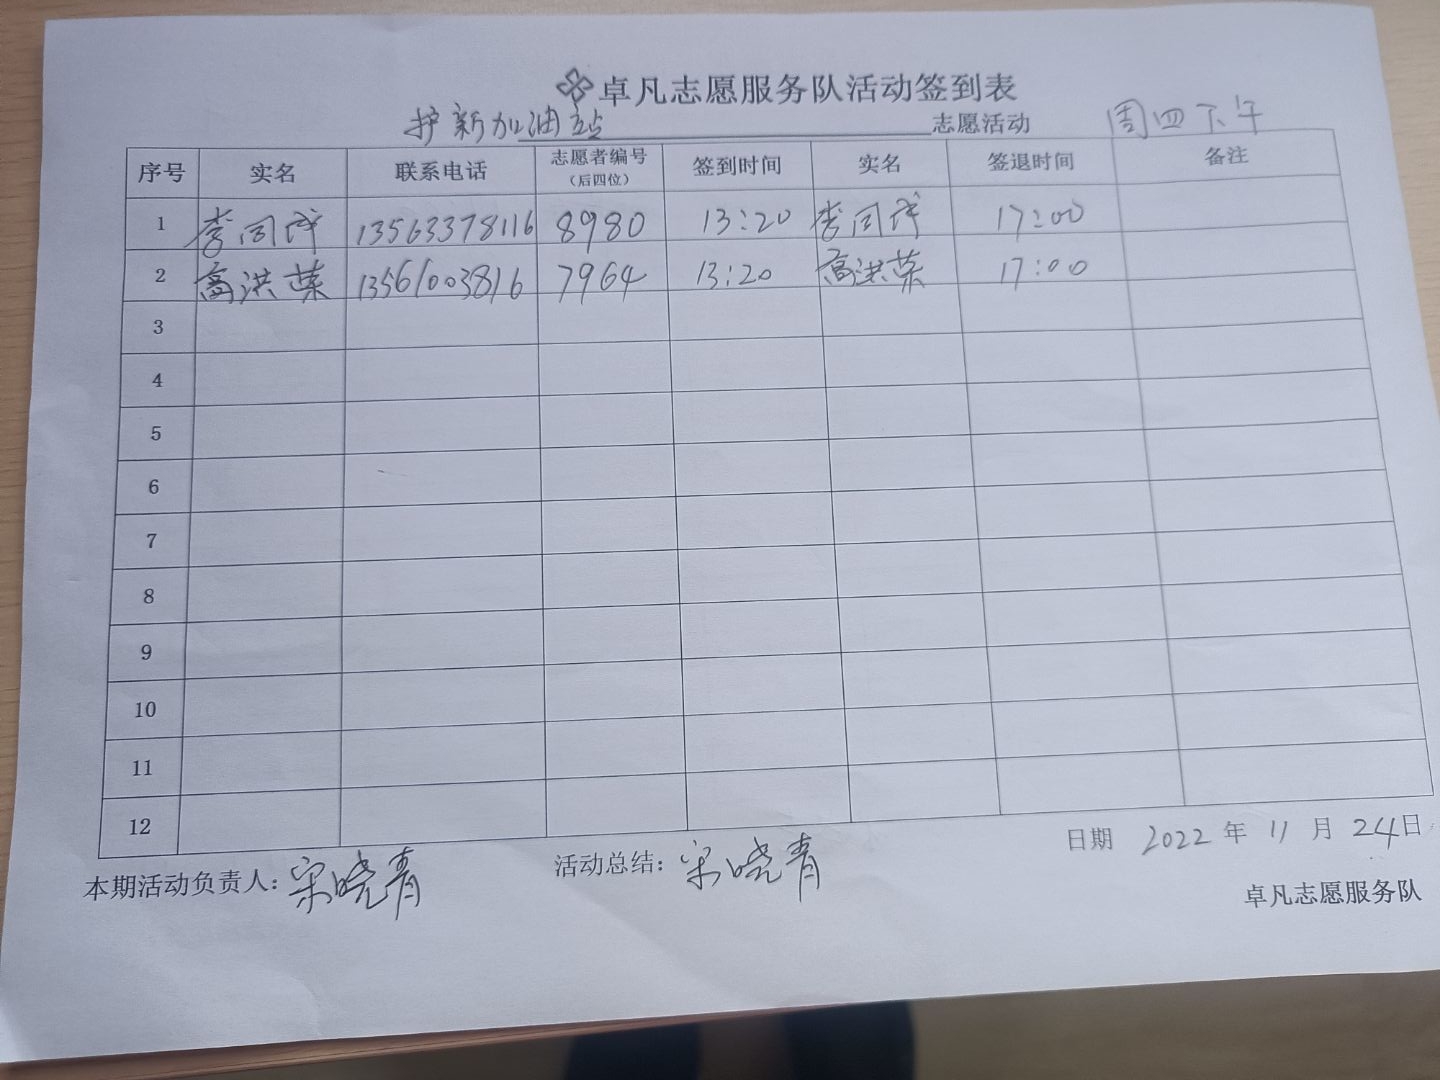 卓凡志愿服务队活动签到表
护新加油站 志愿活动 周四下午
序号 实名 联系电话 志愿者编号（后四位） 签到时间 实名 签退时间 备注
1 李同祥 13563378116 8980 13:20 李同祥 17:00
2 高洪荣 13561003816 7964 13:20 高洪荣 17:00
3
4
5
6
7
8
9
10
11
12
日期 2022 年 11 月 24日
本期活动负责人：宋晓青 活动总结：宋晓青
卓凡志愿服务队